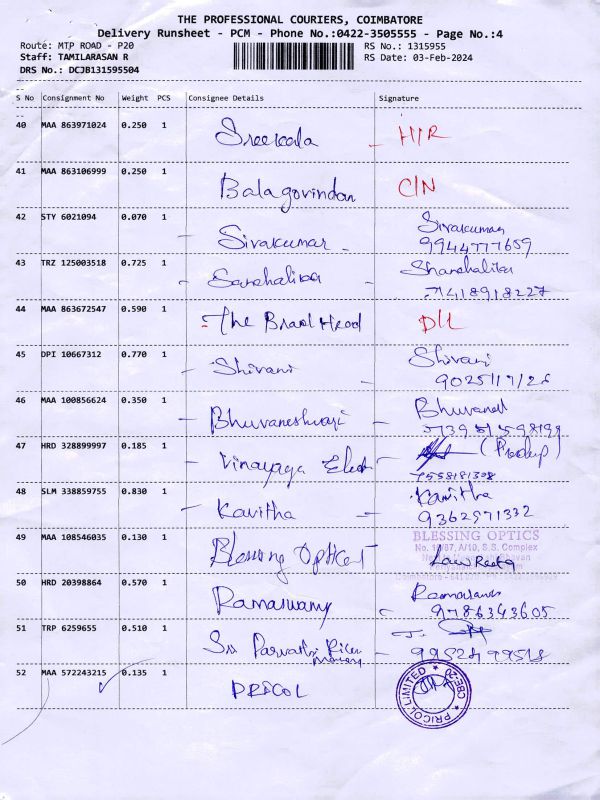 THE PROFESSIONAL COURIERS, COIMBATORE
Delivery Runsheet - PCM - Phone No.:0422-3505555 - Page No.:4
Route: MTP ROAD - P20 RS No.: 1315955
Staff: TAMILARASAN R RS Date: 03-Feb-2024
DRS No.: DCJB131595504
S No Consignment No Weight PCS Consignee Details Signature
40 MAA 863971024 0.250 1 Sreekala - H/R
41 MAA 863106999 0.250 1 Balagovindan C/N
42 STY 6021094 0.070 1 - Sivakumar - Sivakumar
9944777659
43 TRZ 125003518 0.725 1 - Sanchalika - Shanchalika
7418918227
44 MAA 863672547 0.590 1 The Brand Head D/L
45 DPI 10667312 0.770 1 - Shivani - Shivani
46 MAA 100856624 0.350 1 - Bhuvaneshwari -
47 HRD 328899997 0.185 1 - Vinayaga Elect - (Pradeep)
7558181308
48 SLM 338859755 0.830 1 - Kavitha - Kavitha
9362971332
49 MAA 108546035 0.130 1 Blessing Optics
BLESSING OPTICS
No. 10/87, A/10, S.S. Complex
50 HRD 20398864 0.570 1 Ramaswamy
9786343605
51 TRP 6259655 0.510 1 Sri Parvathi Rice
52 MAA 572243215 0.135 1 PRICOL
PRICOL LIMITED * CBE-20 *